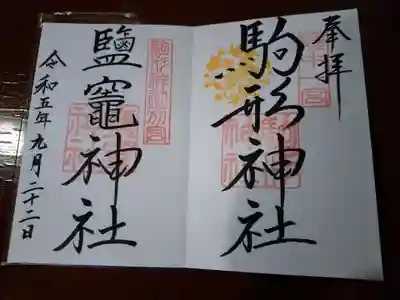 奉拝
駒形神社
鹽竈神社
令和五年九月二十二日